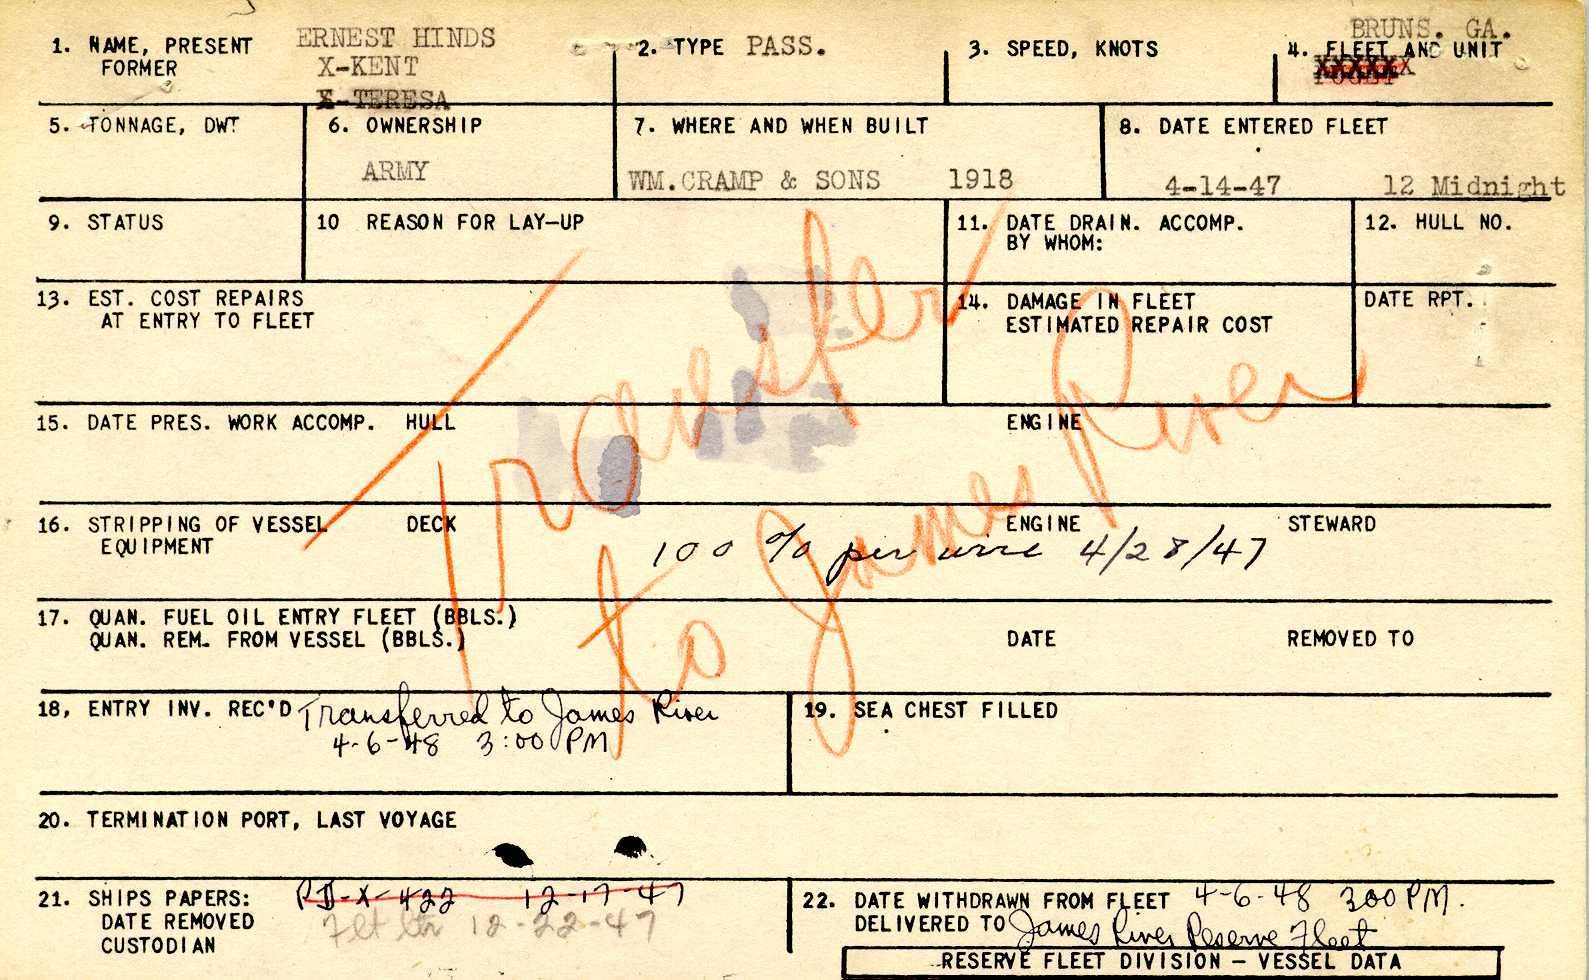 BRUNS. GA.
1. NAME, PRESENT ERNEST HINDS 2. TYPE PASS. 3. SPEED, KNOTS 4. FLEET AND UNIT
FORMER X-KENT XXXXXX
X-TERESA
5. TONNAGE, DWT 6. OWNERSHIP 7. WHERE AND WHEN BUILT 8. DATE ENTERED FLEET
ARMY WM.CRAMP & SONS 1918 4-14-47 12 Midnight
9. STATUS 10 REASON FOR LAY-UP 11. DATE DRAIN. ACCOMP. 12. HULL NO.
BY WHOM:
13. EST. COST REPAIRS 14. DAMAGE IN FLEET DATE RPT.
AT ENTRY TO FLEET ESTIMATED REPAIR COST
Transfer
to James River
15. DATE PRES. WORK ACCOMP. HULL ENGINE
16. STRIPPING OF VESSEL DECK ENGINE STEWARD
EQUIPMENT 100 % per wire 4/28/47
17. QUAN. FUEL OIL ENTRY FLEET (BBLS.)
QUAN. REM. FROM VESSEL (BBLS.) DATE REMOVED TO
18, ENTRY INV. REC'D Transferred to James River 19. SEA CHEST FILLED
4-6-48 3:00 PM
20. TERMINATION PORT, LAST VOYAGE
21. SHIPS PAPERS: PD-X-422 12-17-47 22. DATE WITHDRAWN FROM FLEET 4-6-48 300 PM.
DATE REMOVED Flt ltr 12-22-47 DELIVERED TO James River Reserve Fleet
CUSTODIAN
RESERVE FLEET DIVISION – VESSEL DATA